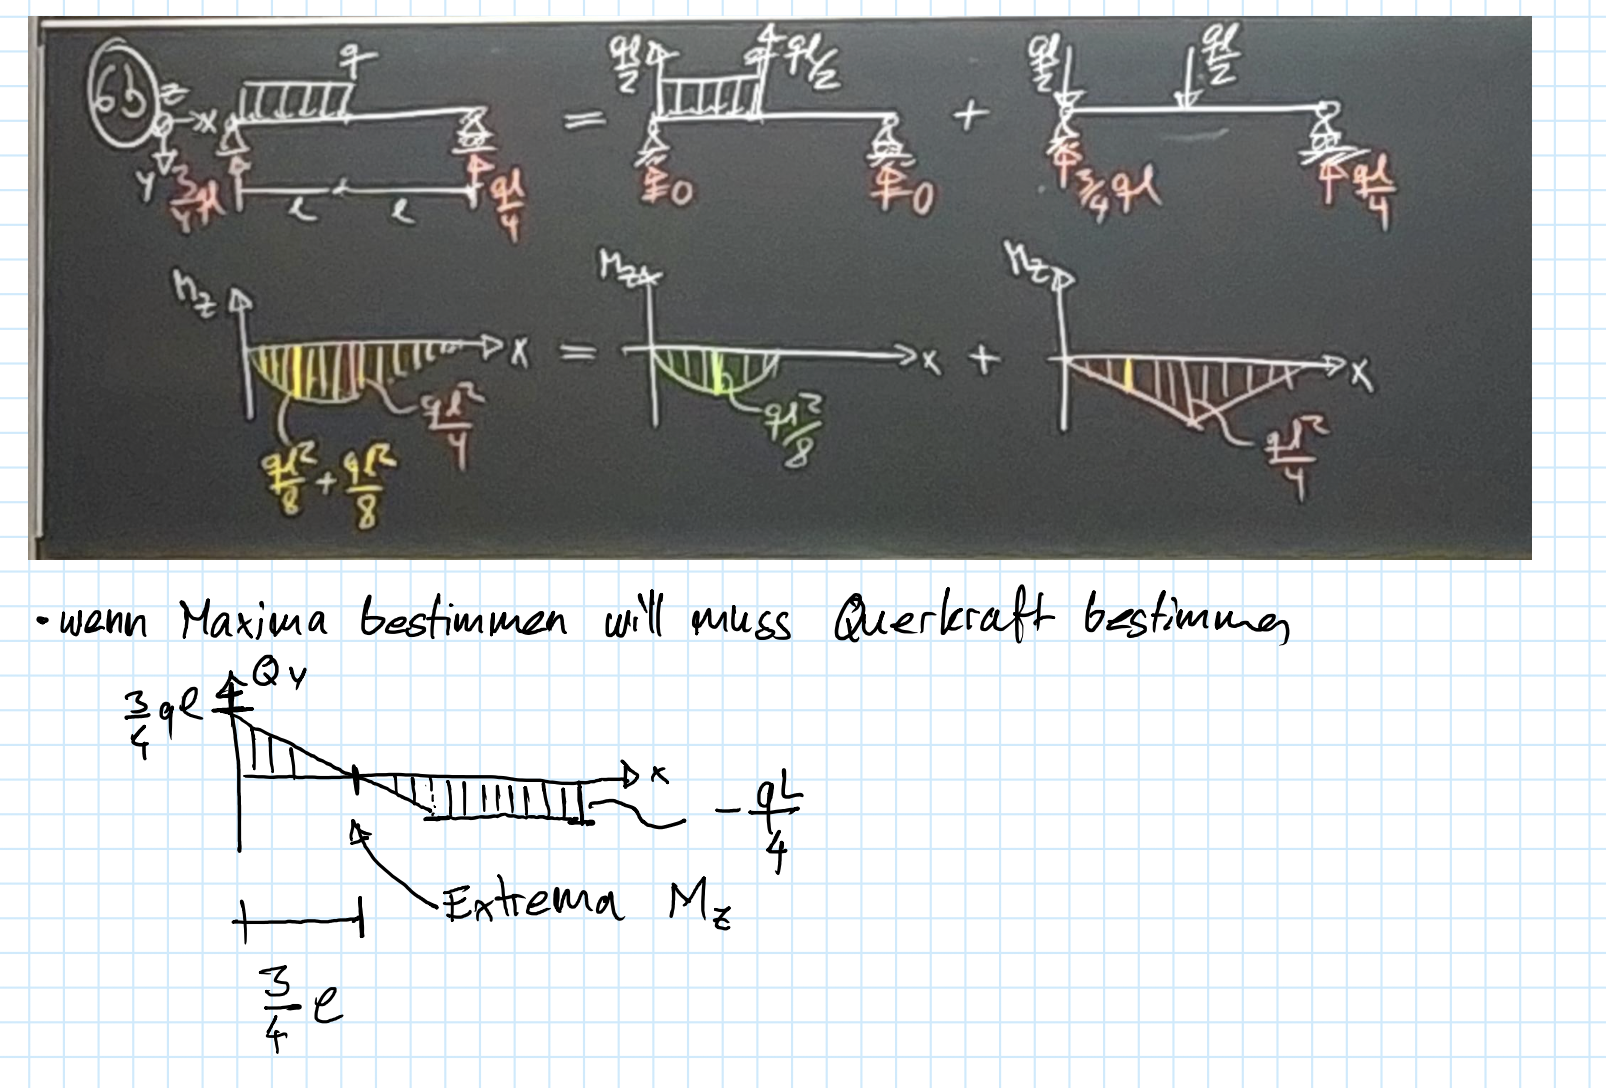 63
z
x
y
q
3/4 ql
l
l
ql/4
=
ql/2
ql/2
=0
=0
+
ql/2
ql/2
3/4 ql
ql/4
Mz
x
ql²/4
ql²/8 + ql²/8
=
Mz
x
ql²/8
+
Mz
x
ql²/4
• wenn Maxima bestimmen will muss Querkraft bestimmen
Qy
3/4 ql
x
- qL/4
Extrema Mz
3/4 l